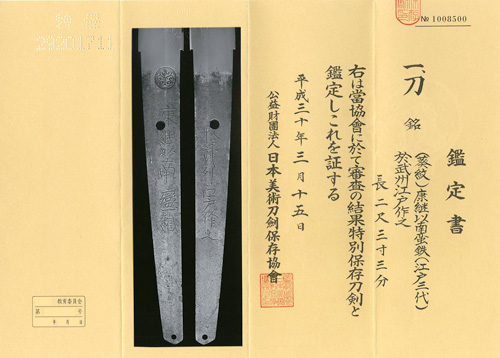 № 1008500
鑑定書
一、刀 銘 (葵紋)康継以南蛮鉄(江戸三代)
於武州江戸作之
長 二尺三寸三分
右は當協會に於て審査の結果特別保存刀劍と
鑑定しこれを証する
平成三十年三月十五日
公益財團法人 日本美術刀劍保存協會
教育委員会
第 号
年 月 日